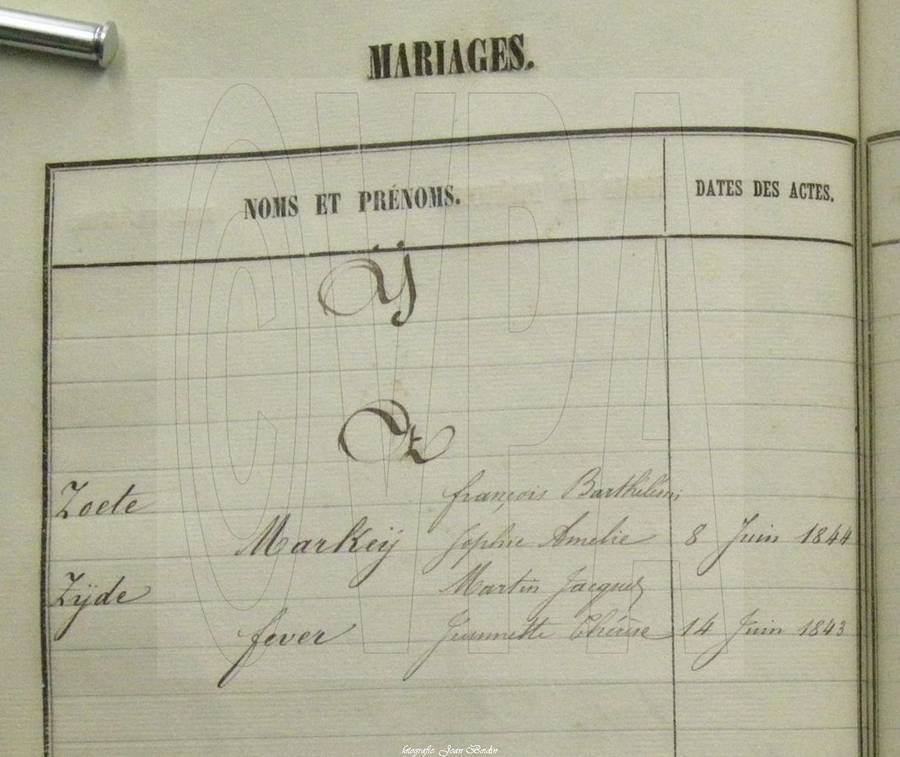 MARIAGES.
NOMS ET PRÉNOMS. DATES DES ACTES.
Ÿ
Z
Zoete françois Barthélémi
Markeÿ Sophie Amelie 8 Juin 1844
Zÿde Martin Jacques
fever Jeannette Thérèse 14 Juin 1843
CVPA
fotografie Jean Boidin